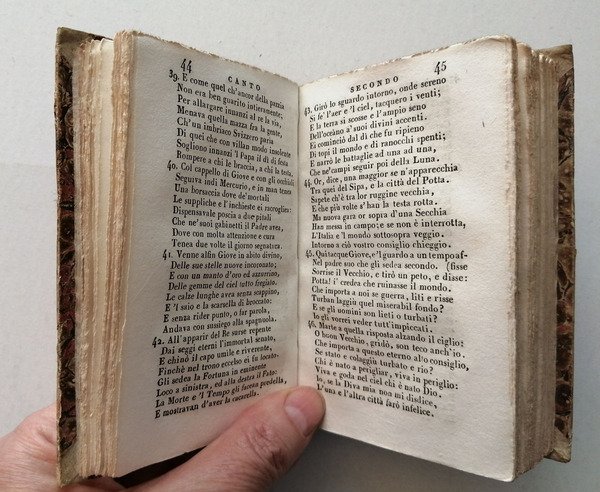 44
CANTO
39. E come quel ch'ancor della pania
Non era ben guarito interamente;
Per allargare innanzi al re la via,
Menava quella mazza fra la gente,
Ch'un imbriaco Svizzero paria
Di quei che con villan modo insolente
Sogliono innanzi 'l Papa il dì di festa
Rompere a chi le braccia, a chi la testa.
40. Col cappello di Giove e con gli occhiali
Seguiva indi Mercurio, e in man tenea
Una borsaccia dove de'mortali
Le suppliche e l'inchieste ei raccoglie:
Dispensavale poscia a due pitali
Che ne' suoi gabinetti il Padre avea,
Dove con molta attenzione e cura
Tenea due volte il giorno segnatura.
41. Venne alfin Giove in abito divino,
Delle sue stelle nuove incoronato;
E con un manto d'oro ed azzurrino,
Delle gemme del ciel tutto fregiato.
Le calze lunghe avea senza scappino,
E 'l saio e la scarsella di broccato:
E senza rider punto, o far parola,
Andava con sussiego alla spagnuola.
42. All'apparir del Re surse repente
Dai seggi eterni l'immortal senato,
E chinò il capo umile e riverente,
Finchè nel trono eccelso ei fu locato.
Gli sedea la Fortuna in eminente
Loco a sinistra, ed alla destra il Fato:
La Morte e 'l Tempo gli facean predella,
E mostravan d'aver la cacarella.
SECONDO
45
43. Girò lo sguardo intorno, onde sereno
Si fe' l'aer e 'l ciel, tacquero i venti;
E la terra si scosse e l'ampio seno
Dell'oceano a' suoi divini accenti.
Ei cominciò dal dì che fu ripieno
Di topi il mondo e di ranocchi spenti;
E narrò le battaglie ad una ad una,
Che ne'campi seguir poi della Luna.
44. Or, dice, una maggior se n'apparecchia
Tra quei del Sipa, e la città del Potta.
Sapete ch'è tra lor ruggine vecchia,
E che più volte s'han la testa rotta.
Ma nuova gara or sopra d'una Secchia
Han messa in campo; e se non è interrotta,
L'Italia e 'l mondo sottosopra veggio.
Intorno a ciò vostro consiglio chieggio.
45. Quì tacque Giove, e 'l guardo a un tempo af-
Nel padre suo che gli sedea secondo. (fisse
Sorrise il Vecchio, e tirò un peto, e disse:
Potta! i' credea che ruinasse il mondo.
Che importa a noi se guerra, liti e risse
Turban laggiù quel miserabil fondo?
E se gli uomini son lieti o turbati?
Io gli vorrei veder tutt'impiccati.
46. Marte a quella risposta alzando il ciglio:
O buon Vecchio, gridò, son teco anch'io.
Che importa a questo eterno alto consiglio,
Se stato e colaggiù turbato e rio?
Chi è nato a perigliar, viva in periglio:
Viva e goda nel ciel chi è nato Dio.
Io, se la Diva mia non mi disdice,
L'una e l'altra città farò infelice.